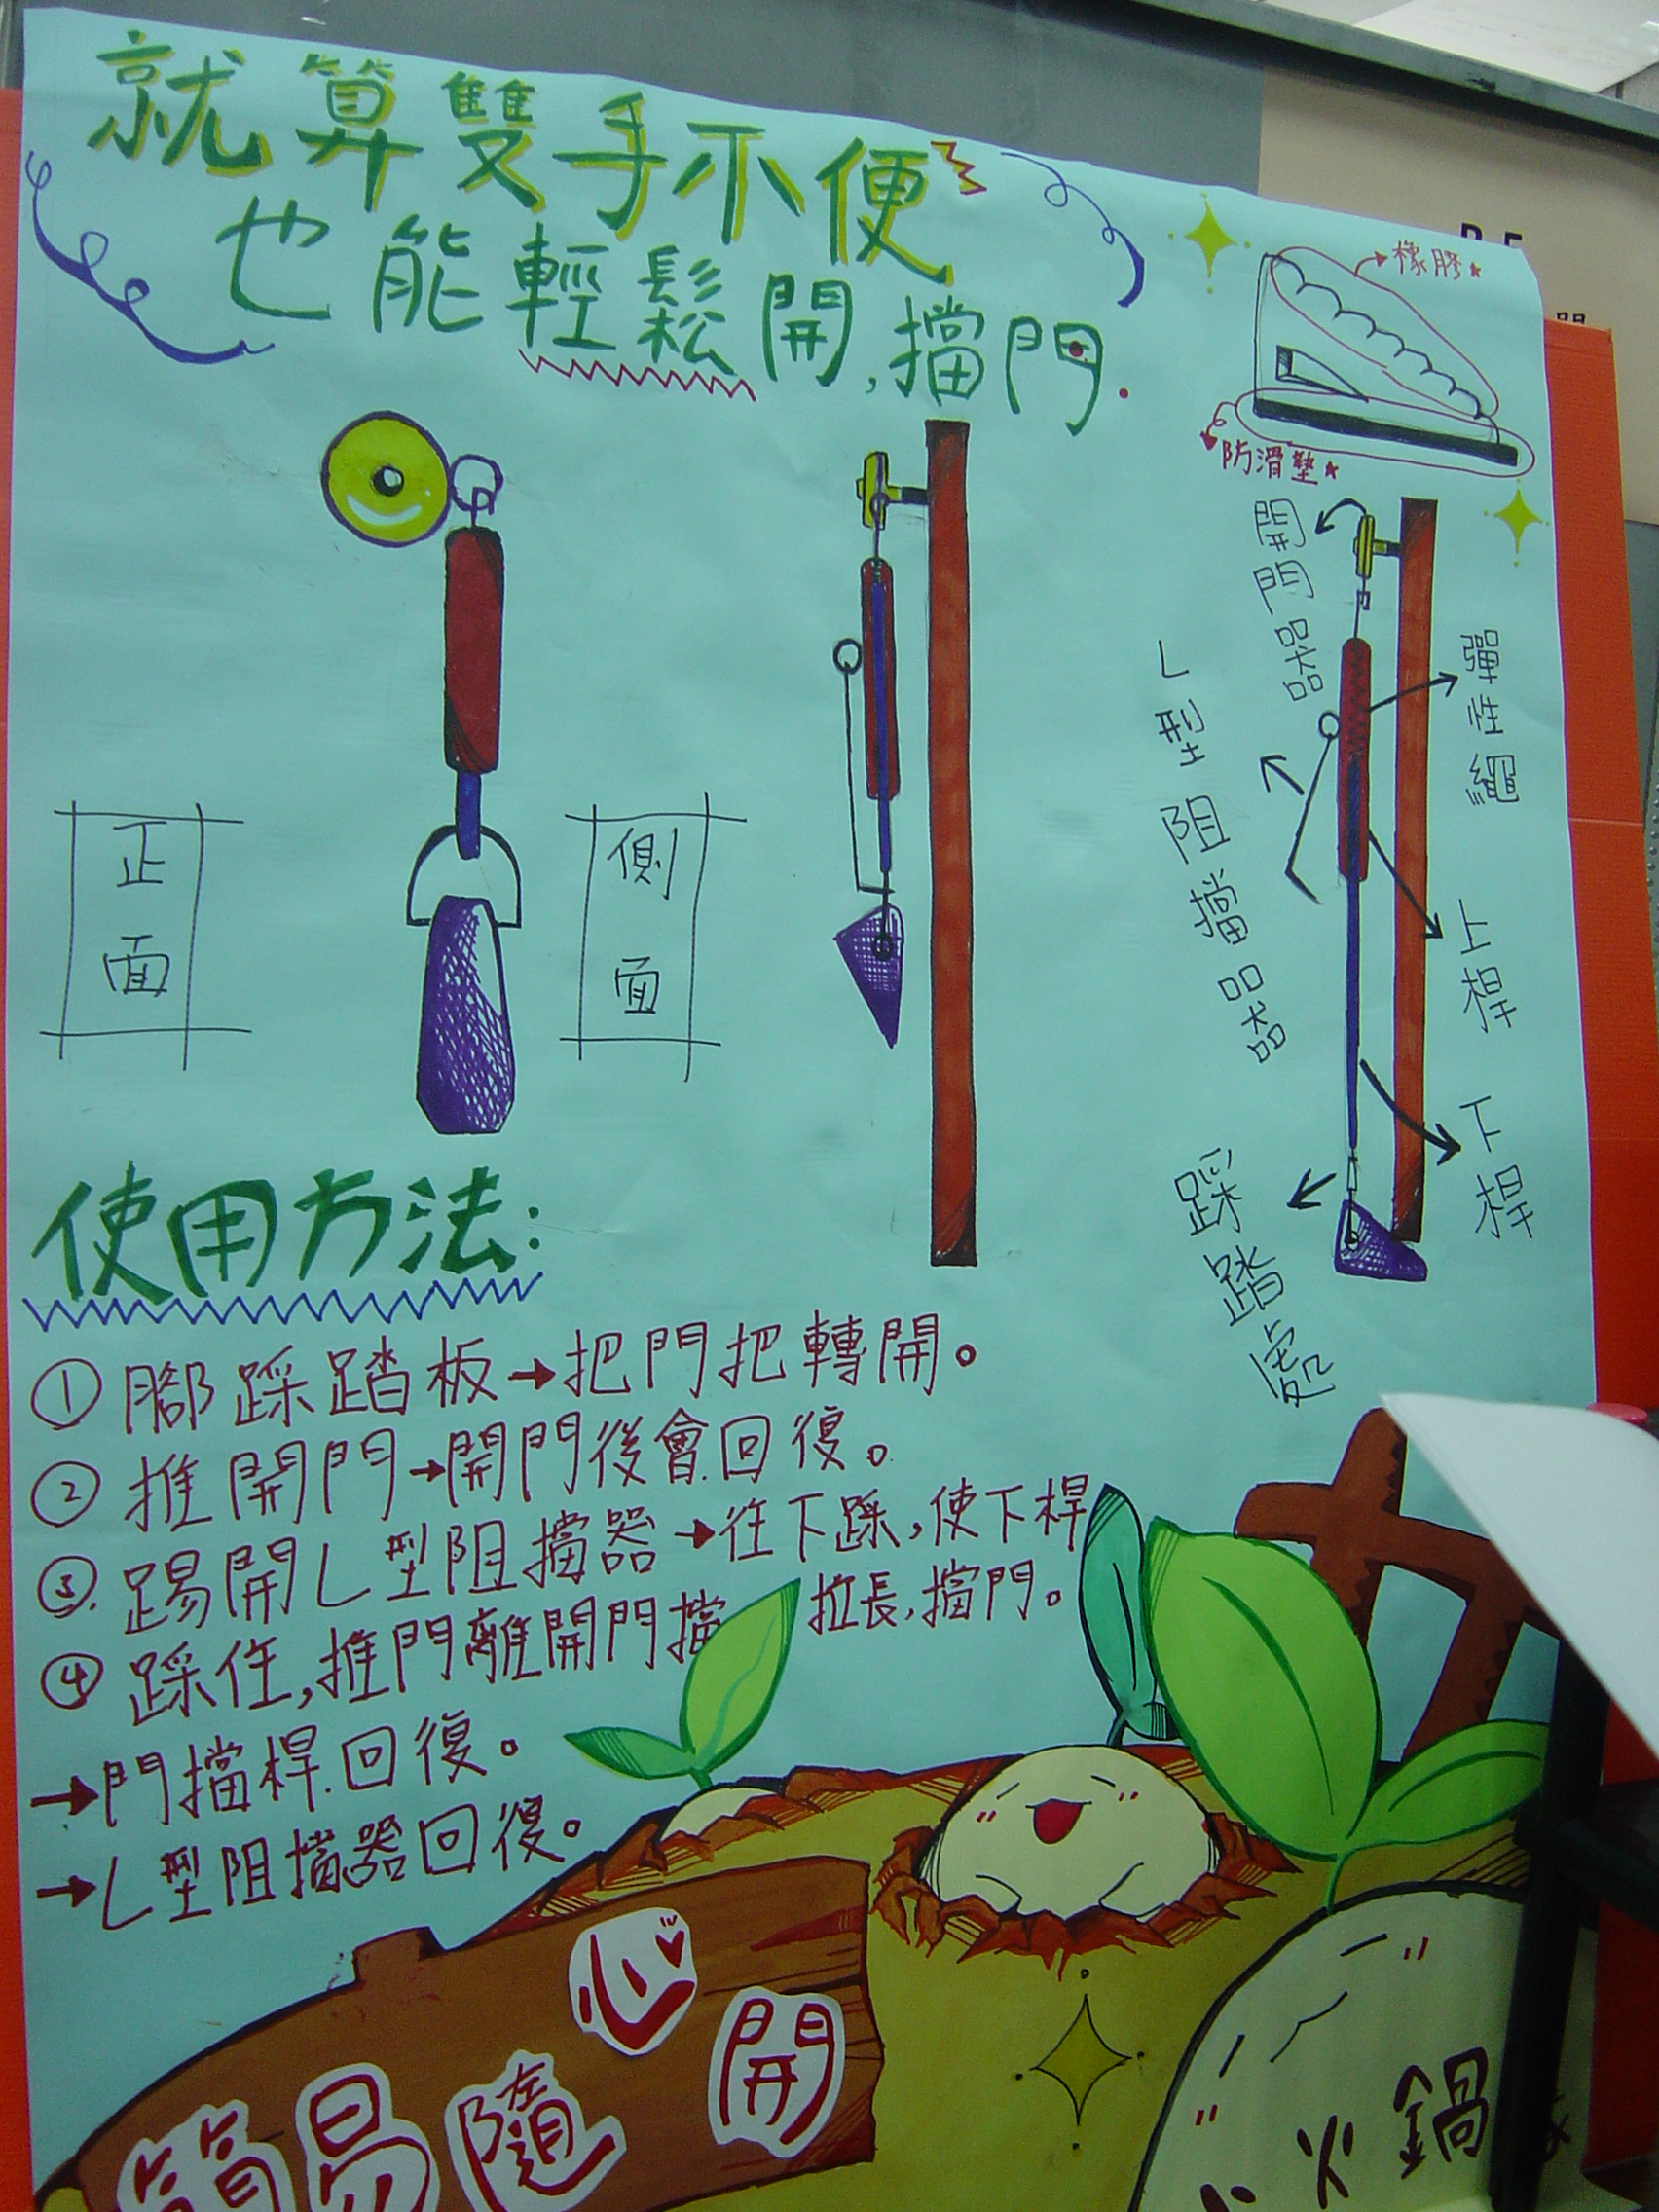 就算雙手不便
也能輕鬆開,擋門.
橡膠
防滑墊
開門器
彈性繩
L型阻擋器
上桿
下桿
踩踏處
正面
側面
使用方法:
① 腳踩踏板→把門把轉開。
② 推開門→開門後會回復。
③ 踢開L型阻擋器→往下踩,使下桿
拉長,擋門。
④ 踩住,推門離開門擋
→門擋桿回復。
→L型阻擋器回復。
簡易隨心開
火鍋